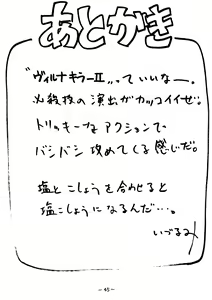 あとがき
"ヴィルナキラーII"っていいなー。
必殺技の演出がカッコイイぜ。
トリッキーなアクションで
バシバシ攻めてくる感じだ。
塩とこしょうを合わせると
塩こしょうになるんだ…。
いづるみ
-45-